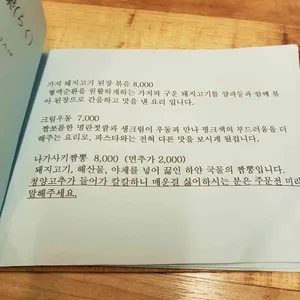 가지 돼지고기 된장 볶음 8,000
혈액순환을 원활하게하는 가지와 구운 돼지고기를 양파등과 함께 볶
아 된장으로 간을하고 맛을 낸 요리 입니다.
크림우동 7,000
짭쪼름한 명란젓갈과 생크림이 우동과 만나 핑크색의 부드러움을 더
해주는 요리로, 파스타와는 전혀 다른 맛을 보시게 됩니다.
나가사키짬뽕 8,000 (면추가 2,000)
돼지고기, 해산물, 야채를 넣어 끓인 하얀 국물의 짬뽕입니다.
청양고추가 들어가 칼칼하니 매운걸 싫어하시는 분은 주문전 미리
말해주세요.